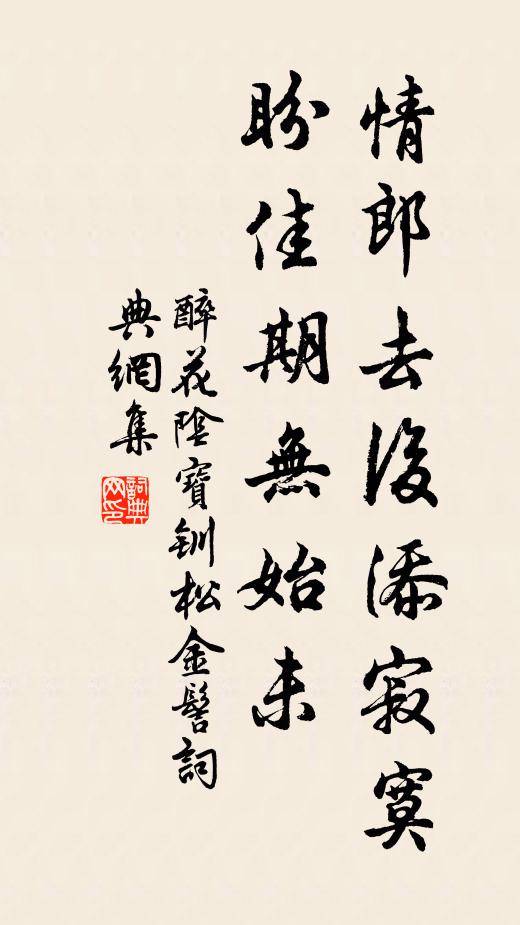 情郎去後添寂寞
盼佳期無始末
醉花陰寶釧松金髻詞
典網集
詞典网印